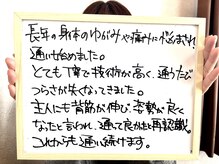 長年の身体のゆがみや痛みに悩まされ
通い始めました。
とても丁寧で技術が高く、通うたび
つらさが失くなってきました。
主人にも背筋が伸び、姿勢が良く
なったと言われ、通って良かったと再認識。
これからも通い続けます。